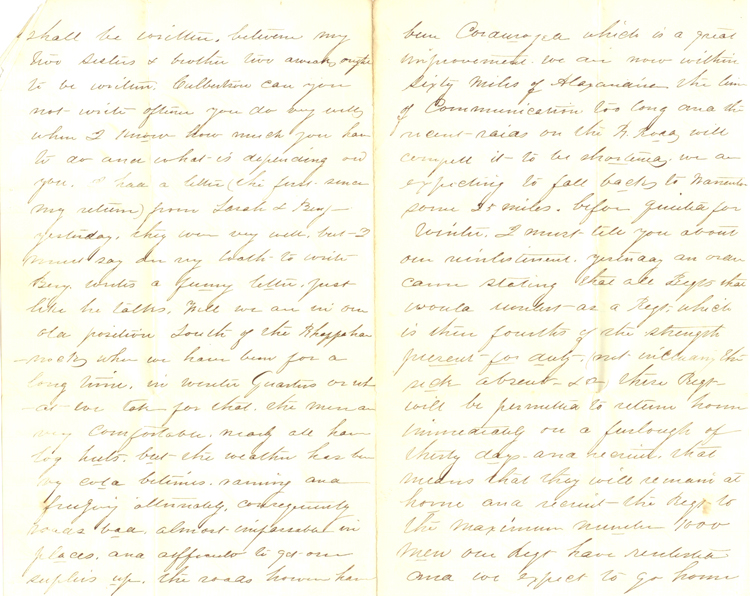 shall be written, between my
two sisters & brother two a week ought
to be written. Culbertson can you
not write oftener you do very well
when I know how much you have
to do and what is depending on
you. I had a letter (the first since
my return) from Sarah & Benj
yesterday. they were very well. but I
must say are very loath to write
Benj. writes a funny letter. just
like he talks. Well we are in our
old position South of the Rhappahan
nock, where we have been for a
long time. in winter Quarters or wh
at we take for that. the men are
very comfortable. nearly all have
log huts. but the weather has been
very cold betimes. raining and
freezing alternately, consequently
roads bad. almost impassable in
places. and difficult to get our
suplies up. the roads however have
been Corduroyed which is a great
improvement. we are now within
Sixty Miles of Alexandria the line
of Communication too long and the
recent raids on the R. Road will
compell it to be shortened. we are
expecting to fall back to Warrenton
some 25 miles. before quieted for
Winter. I must tell you about
our reinlistment. yesterday an order
came stating that all Regts that
would reinlist as a Regt. which
is three fourths of the strength
present for duty. (not including the
sick absent &c) these Regts
will be permitted to return home
immediately on a furlough of
thirty days. and recruit. that
means that they will remain at
home and recruit the Regt. to
the maximum number 1000
men our Regt have reenlisted
and we expect to go home